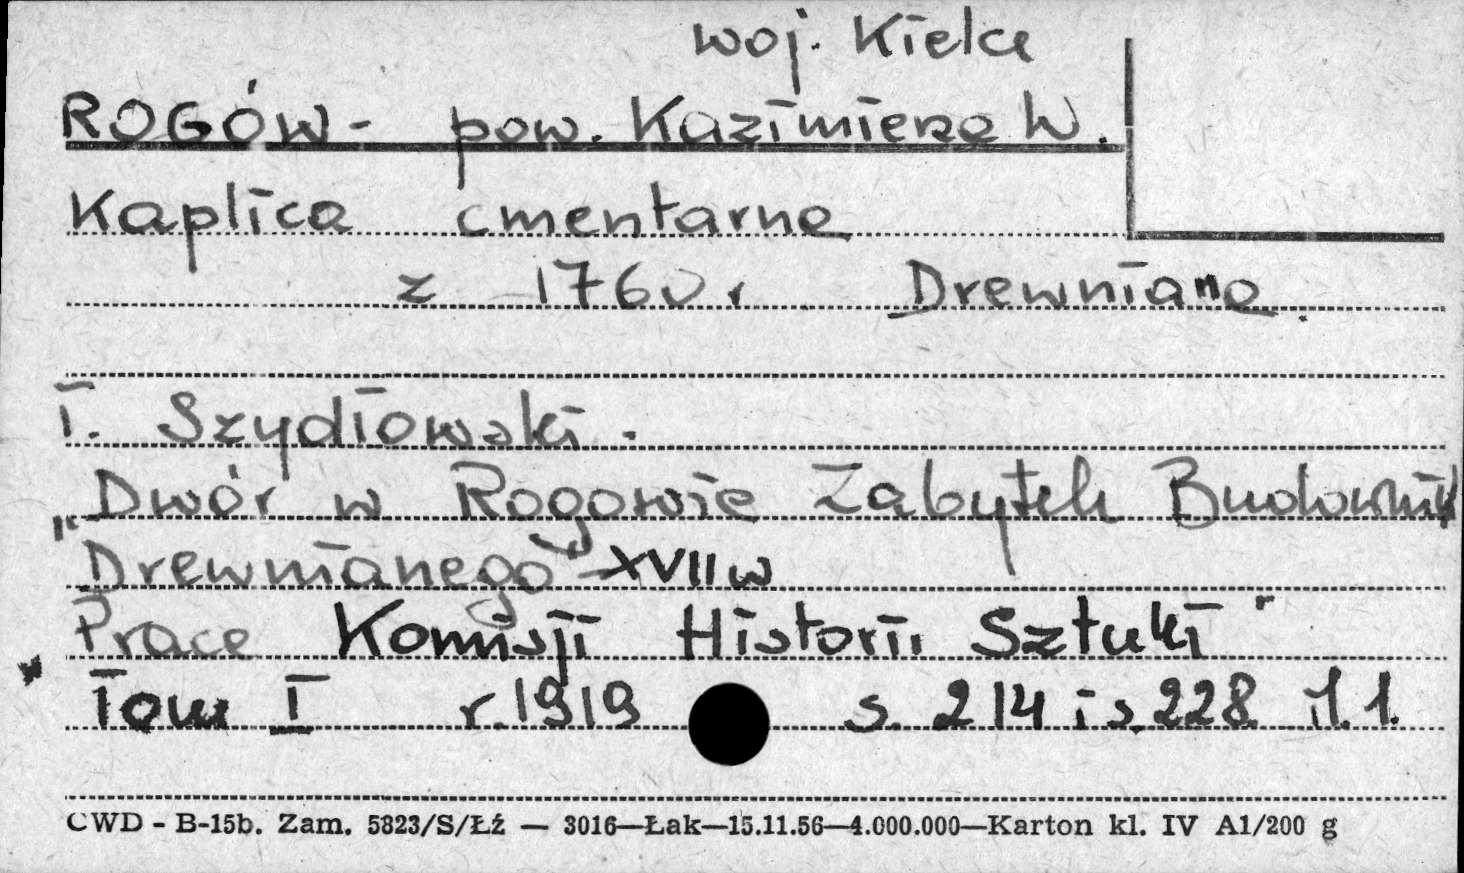 woj. Kielce
ROGÓW - pow. Kazimierza W.
Kaplica cmentarna
z 1760 r Drewniana.
T. Szydłowski.
Dwór w Rogowie Zabytek Budownic
"Drewnianego" XVII w
Prace Komisji Historii Sztuki"
" Tom I r. 1919 s. 214 i s. 228 il. 1.
CWD - B-15b. Zam. 5823/S/Łź — 3016—Łak—15.11.56—4.000.000—Karton kl. IV A1/200 g